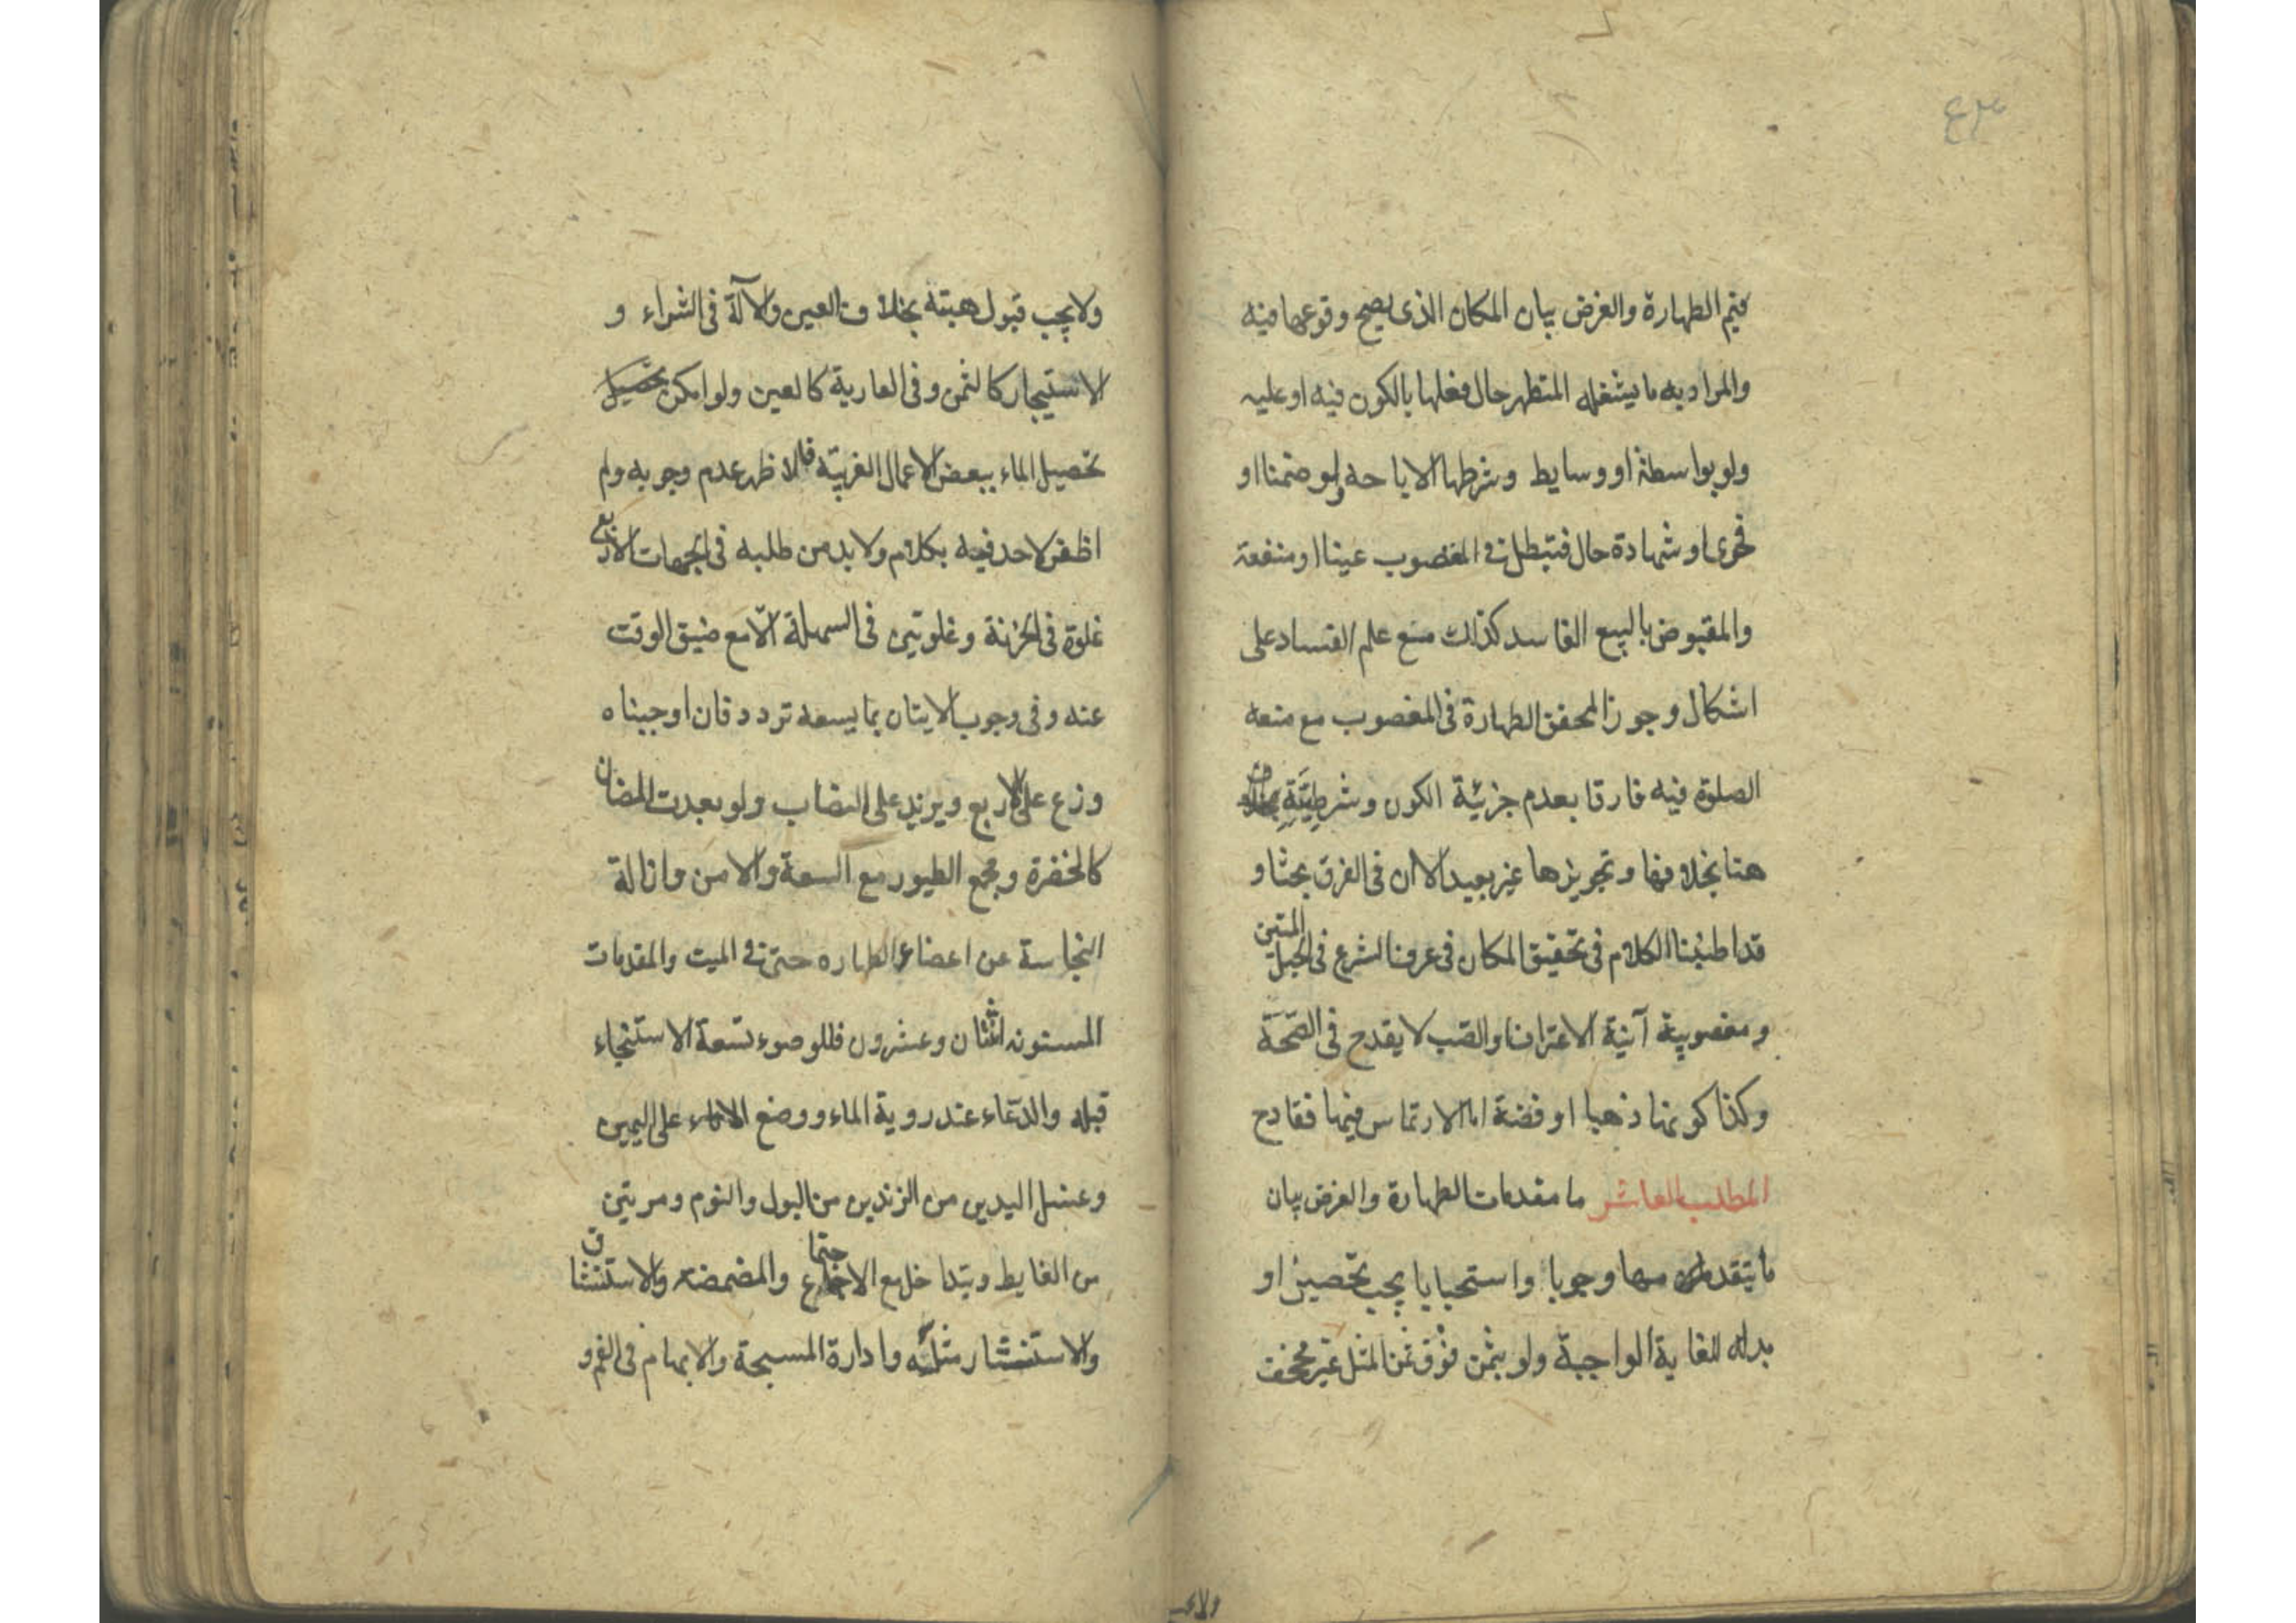 ٤٣
فيم الطهارة والغرض بيان المكان الذى يصح وقوعها فيه
والمراد به ما يشغله المتطهر حال فعلها بالكون فيه او عليه
ولو بواسطة او وسايط وشرطها الاباحه ولو ضمنا او
فحوى او شهادة حال فتبطل فى المغصوب عينا او منفعة
والمقبوض بالبيع الفاسد كذلك مع علم الفساد على
اشكال وجوز المحقق الطهارة فى المغصوب مع منعه
الصلوة فيه فارقا بعدم جزئية الكون وشرطيته
هنا بخلافها وتجويزها غير بعيد الا ان فى الفرق بحثا و
قد اطنبنا الكلام فى تحقيق المكان فى عرف الشرع فى الحبل المتين
ومغصوبية آنية الاغتراف والصب لا يقدح فى الصحة
وكذا كونها ذهبا او فضة اما الارتماس فيها فقادح
المطلب العاشر ما مقدمات الطهارة والغرض بيان
ما يتقدم منها وجوبا واستحبابا يجب تحصيل او
بدله للغاية الواجبة ولو بثمن فوق ثمن المثل غير مجحف
ولا يجب قبول هبته بخلاف العين والآلة فى الشراء و
الاستيجار كالثمن وفى العارية كالعين ولو امكن تحصيل
تحصيل الماء ببعض الاعمال الغريبة فالاظهر عدم وجوبه ولم
اظفر لاحد فيه بكلام ولا بد من طلبه فى الجهات الاربع
غلوة فى الحزنة وغلوتين فى السهلة الا مع ضيق الوقت
عنه وفى وجوب الاتيان بما يسعه تردد فان اوجبناه
وزع على الاربع ويزيد على النصاب ولو بعدت المضان
كالخضرة ومجمع الطيور مع السعة والامن وازالة
النجاسة عن اعضاء الطهاره حتى فى الميت والمقدمات
المسنونه اثنتان وعشرون فللوضوء تسعة الاستنجاء
قبله والدعاء عند روية الماء ووضع الاناء على اليمين
وغسل اليدين من الزندين من البول والنوم ومرتين
من الغايط ويتداخل مع الاجتماع والمضمضه والاستنشاق
والاستنشار مثله وادارة المسبحة والابهام فى الفم و
ولا